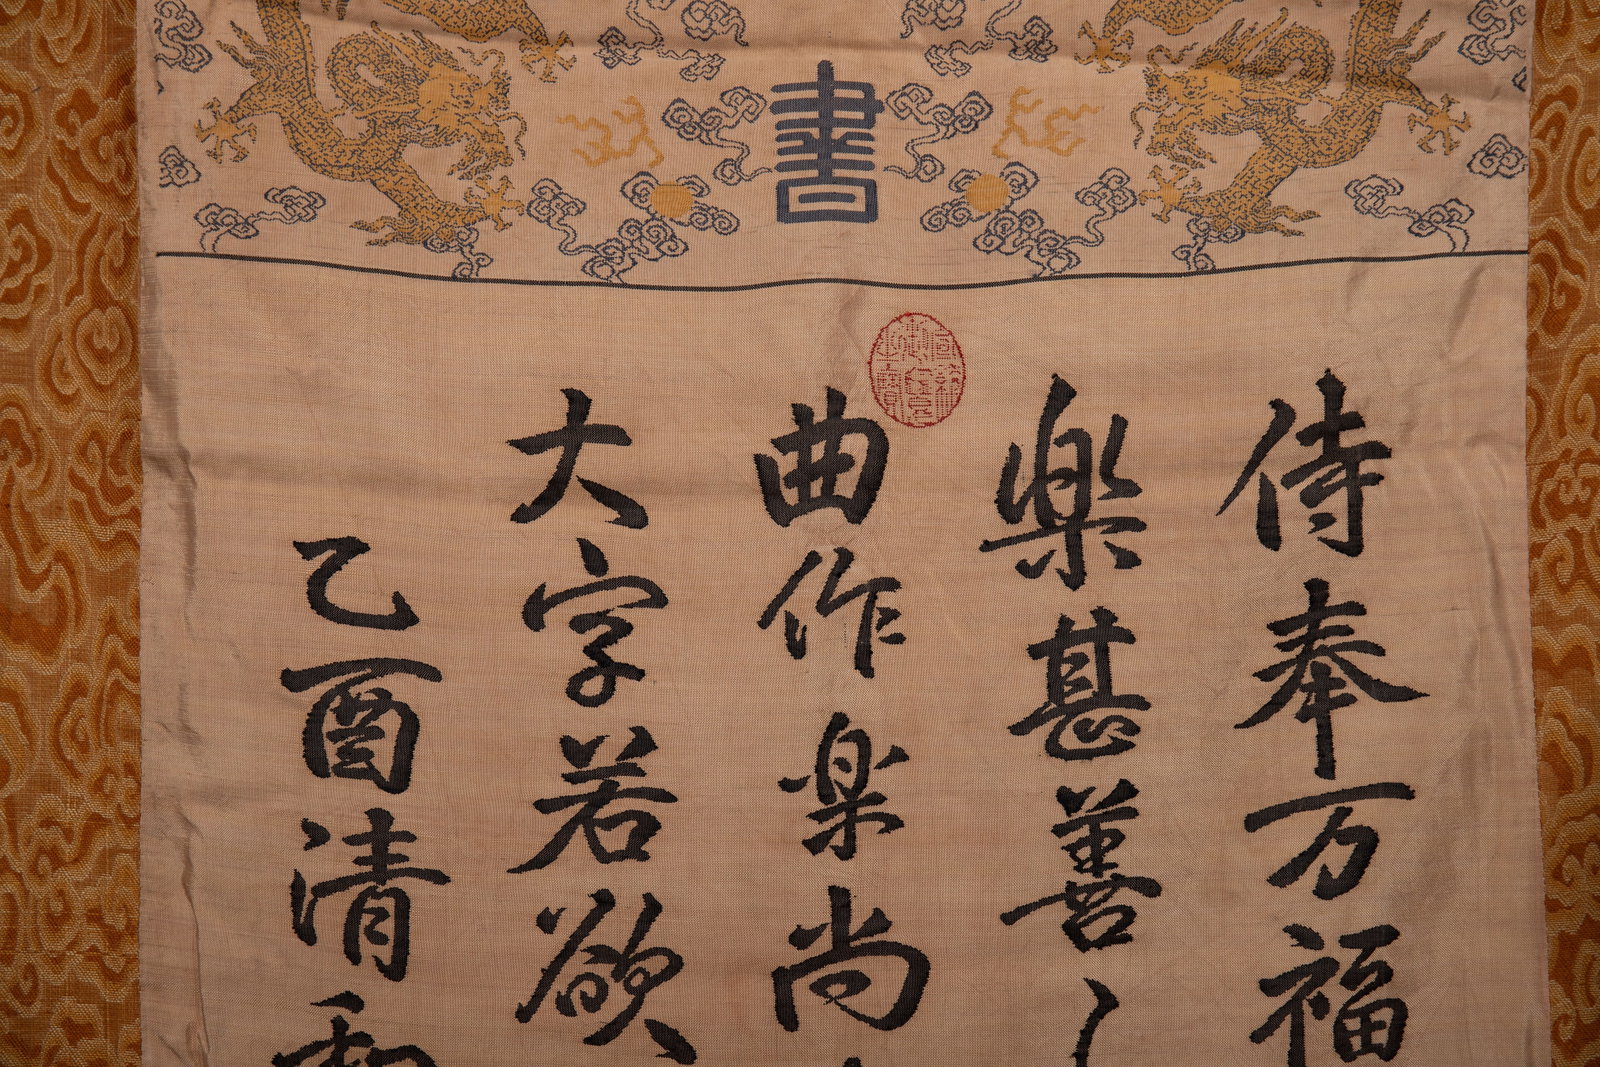 書
侍奉万福
楽甚善
曲作楽尚
大字若欲
乙酉清和